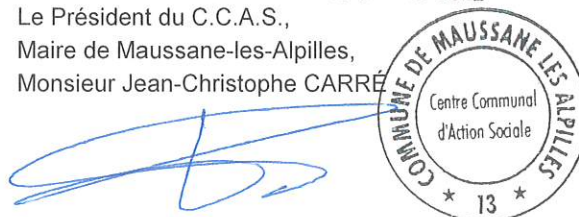 Le Président du C.C.A.S.,
Maire de Maussane-les-Alpilles,
Monsieur Jean-Christophe CARRÉ
COMMUNE DE MAUSSANE LES ALPILLES
Centre Communal
d'Action Sociale
* 13 *